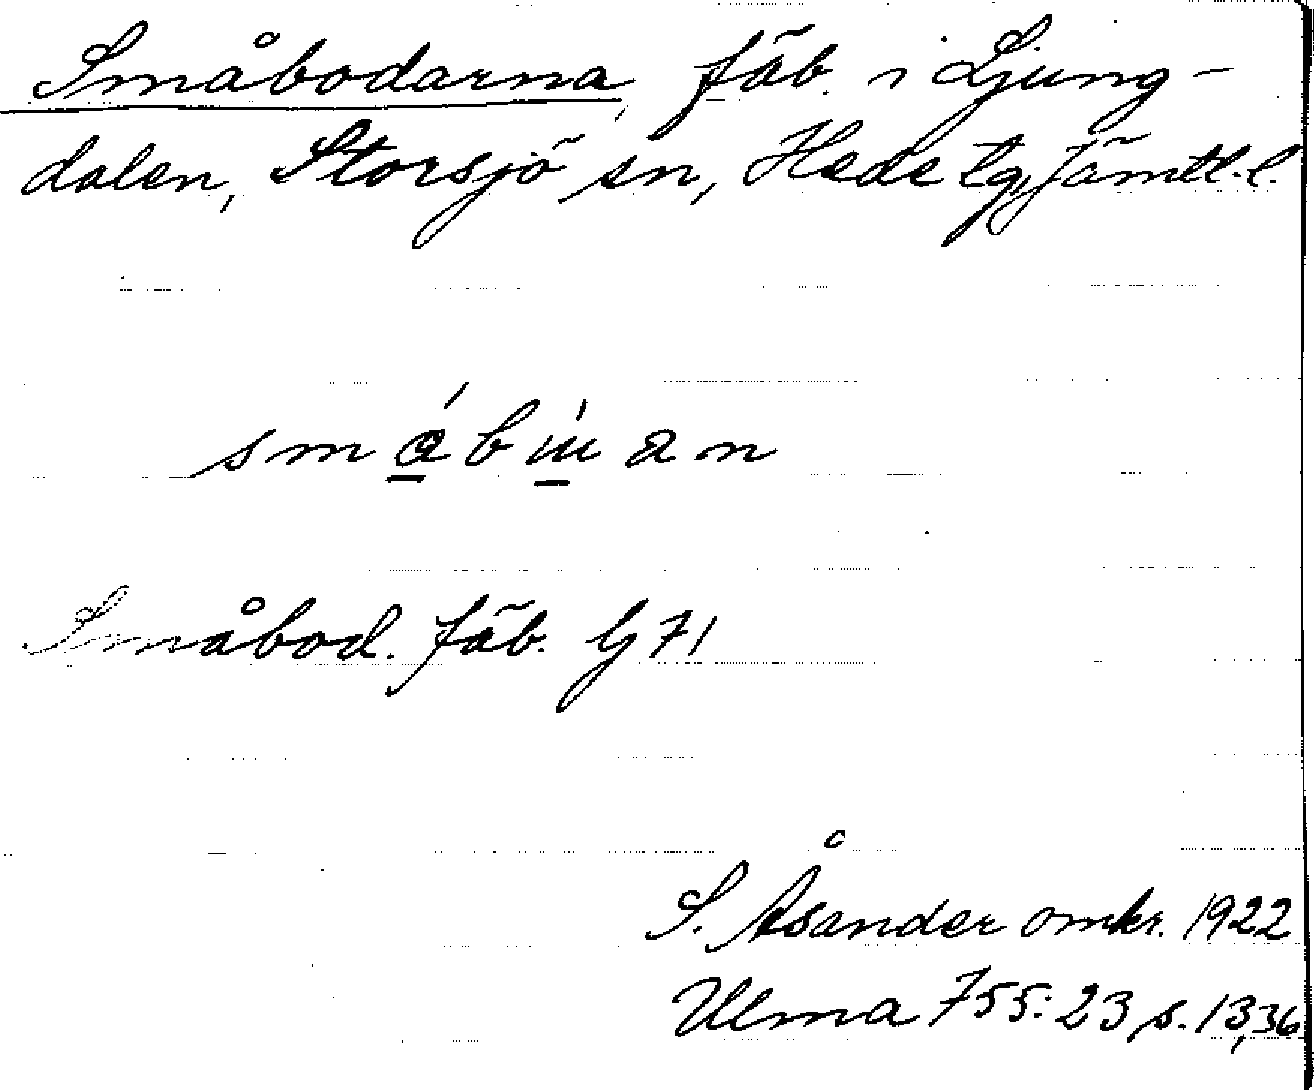 Småbodarna, fäb. i Ljung-
dalen, Storsjö sn, Hede tg, Jämtl. l.
Småbod. fäb. G 71
S. Åsander omkr. 1922
Ulma 755:23 s. 13, 36